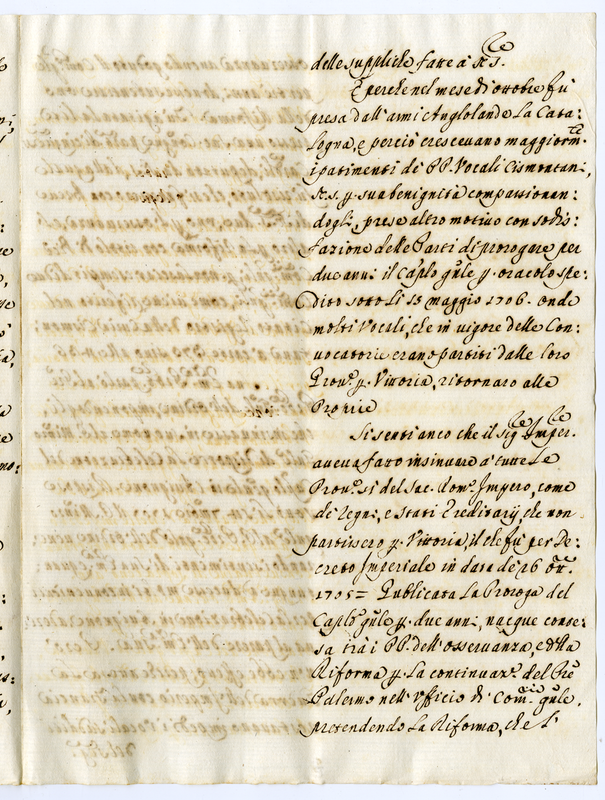 delle suppliche fatte à N. S.re
E perche nel mese di ottobre fù
presa dall'armi Anglolande La Cata:
logna, e perciò crescevano maggiorm.te
i patimenti de PP. Vocali Cismontani,
N. S. p. sua benignità compassionan:
dogli, prese altro motivo con sodis:
fazione delle Parti di prorogare per
due anni il Cap̃lo gñle p. oracolo spe:
dito sotto Li 15 maggio 1706. onde
molti Vocali, che in vigore delle Con:
vocatorie erano partiti dalle loro
Prov.e p. Vittoria, ritornaro alle
Proprie
Si sentì anco che il Sig.re Imper.re
aveva fatto insinuare a' tutte Le
Prov.e si del Sac. Rom.o Impero, come
de' Regni, e Stati Ereditarij, che non
partissero p. Vittoria, il che fù per De:
creto Imperiale in data de' 26 ott.re
1705 = Publicata La Proroga del
Cap̃lo gñle p. due anni, nacque conte:
sa trà i PP. dell'osservanza, e della
Riforma p. La continuaz.e del P̃re
Palermo nell'Ufficio di Com.rio gñle,
pretendendo La Riforma, che l'